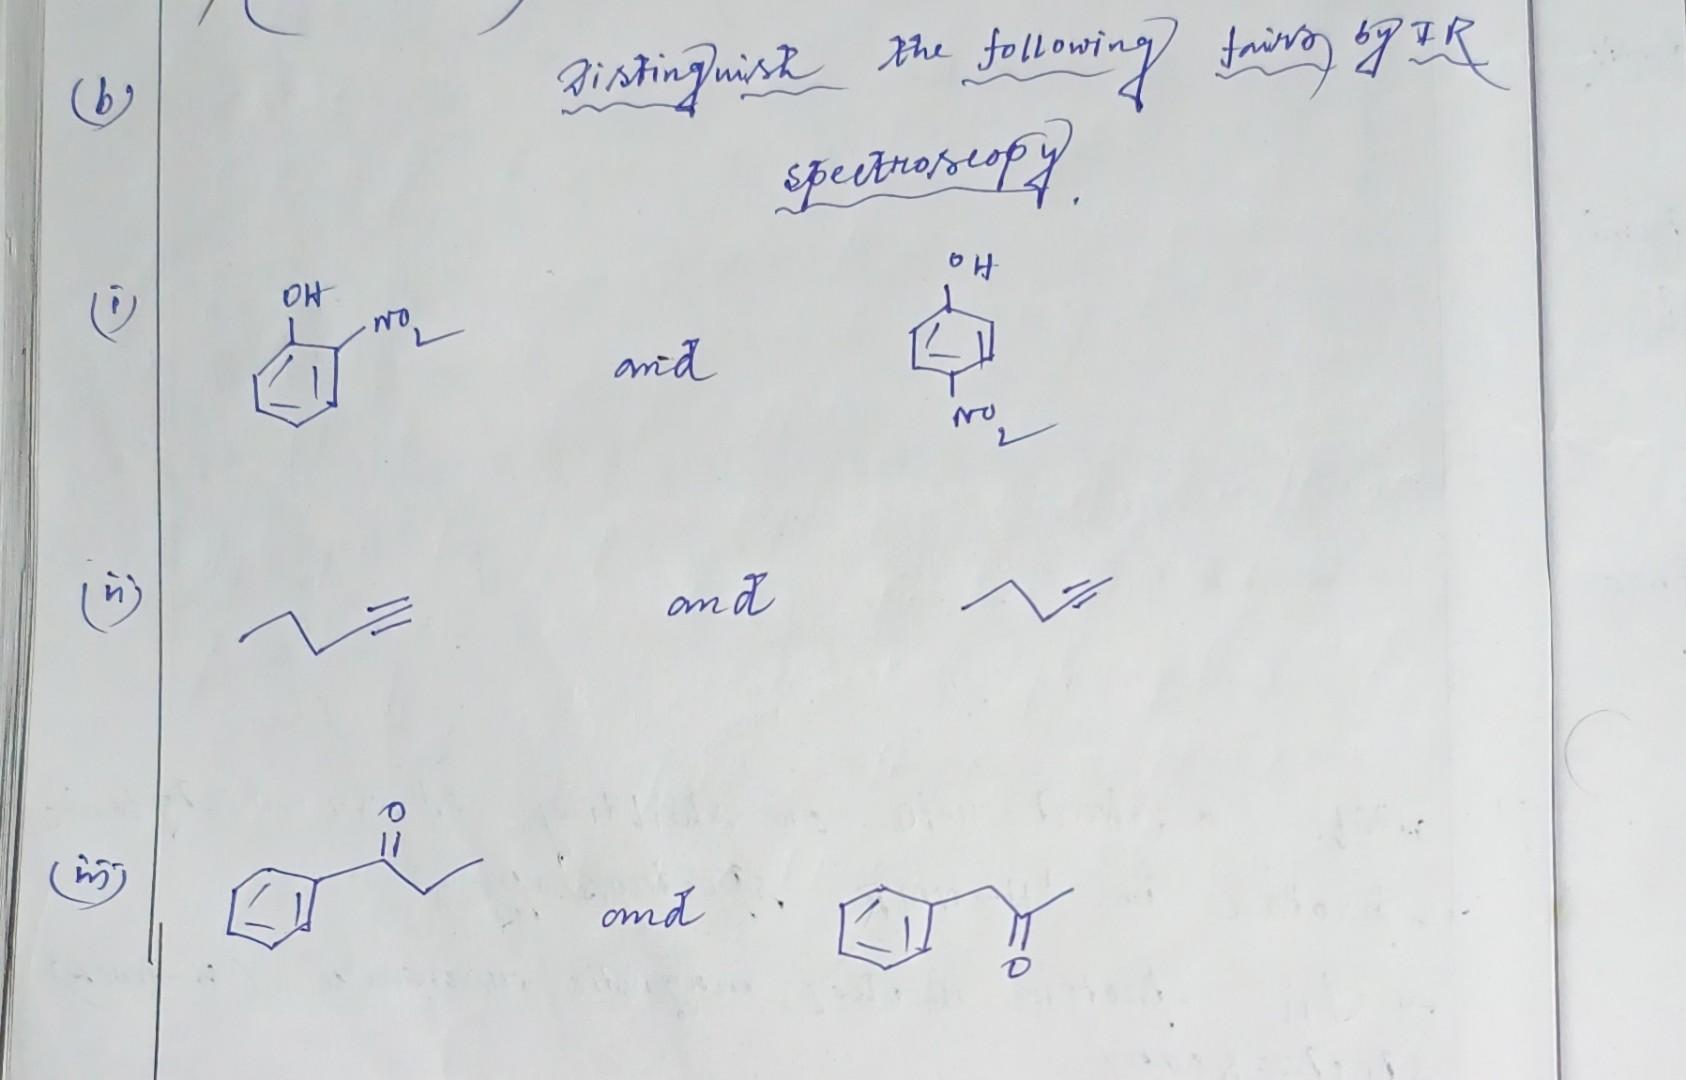 (b) Distinguish the following pairs by IR
spectroscopy.
(i) OH NO2 and OH NO2
(ii) and
(iii) O and O